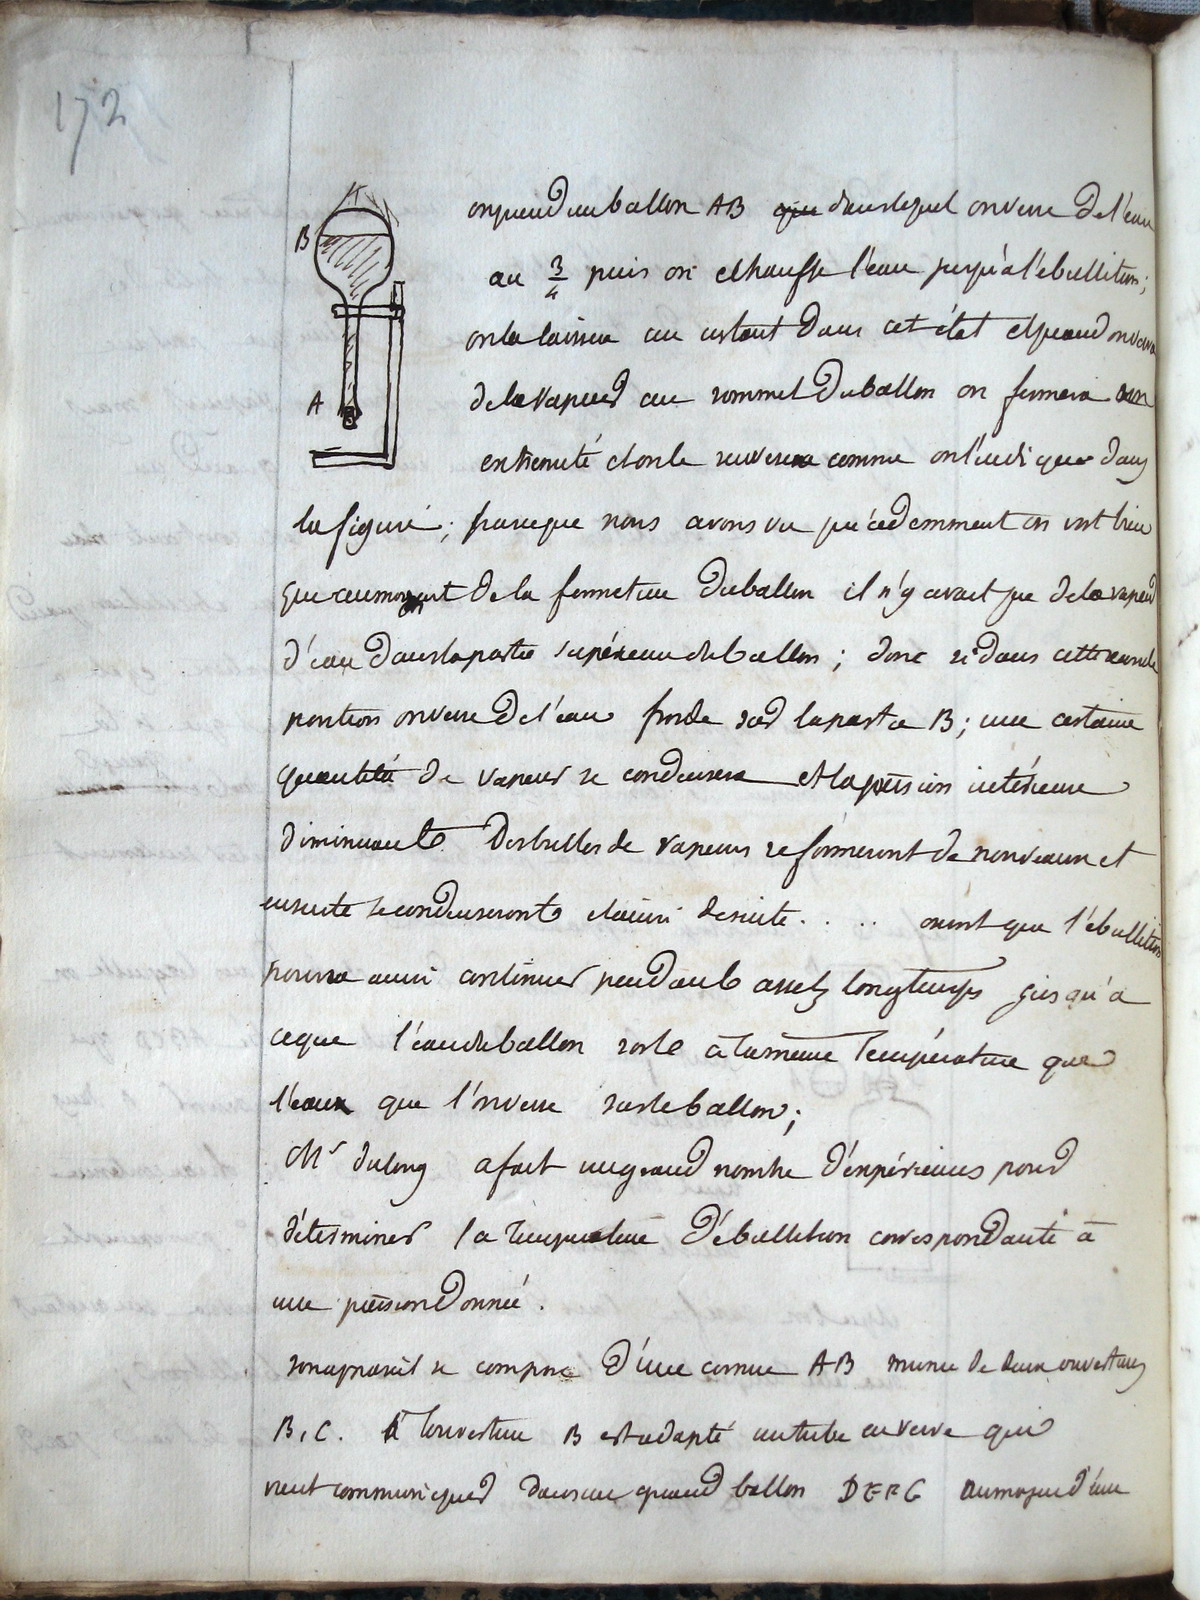 172
B
A
on prend un ballon AB que dans lequel on verse de l'eau
au 3/4 puis on chauffe l'eau jusqu'à l'ébullition ;
on la laissera un instant dans cet état et quand on verra
de la vapeur au sommet du ballon on fermera son
extremité et on le renversera comme on l'indique dans
la figure ; parceque nous avons vu précedemment on voit bien
que au moment de la fermeture du ballon il n'y avait que de la vapeur
d'eau dans la partie supérieure du ballon ; donc si dans cette
position on verse de l'eau froide sur la partie B ; une certaine
quantité de vapeur se condensera et la pression intérieure
diminuant Des bulles de vapeurs se formeront de nouveau et
ensuite se condenseront et ainsi de suite . . . . on voit que l'ébullition
pourra ainsi continuer pendant assez longtemps jusqu'a
ceque l'eau du ballon soit a la même température que
l'eau que l'on verse sur le ballon ;
Mr dulong a fait un grand nombre d'expériences pour
déterminer la température d'ébullition correspondante à
une pression donnée .
son appareil se compose d'une cornue AB munie de deux ouvertures
B, C. A l'ouverture B est adapté un tube en verre qui
vient communiquer dans un grand ballon DEFG au moyen d'un